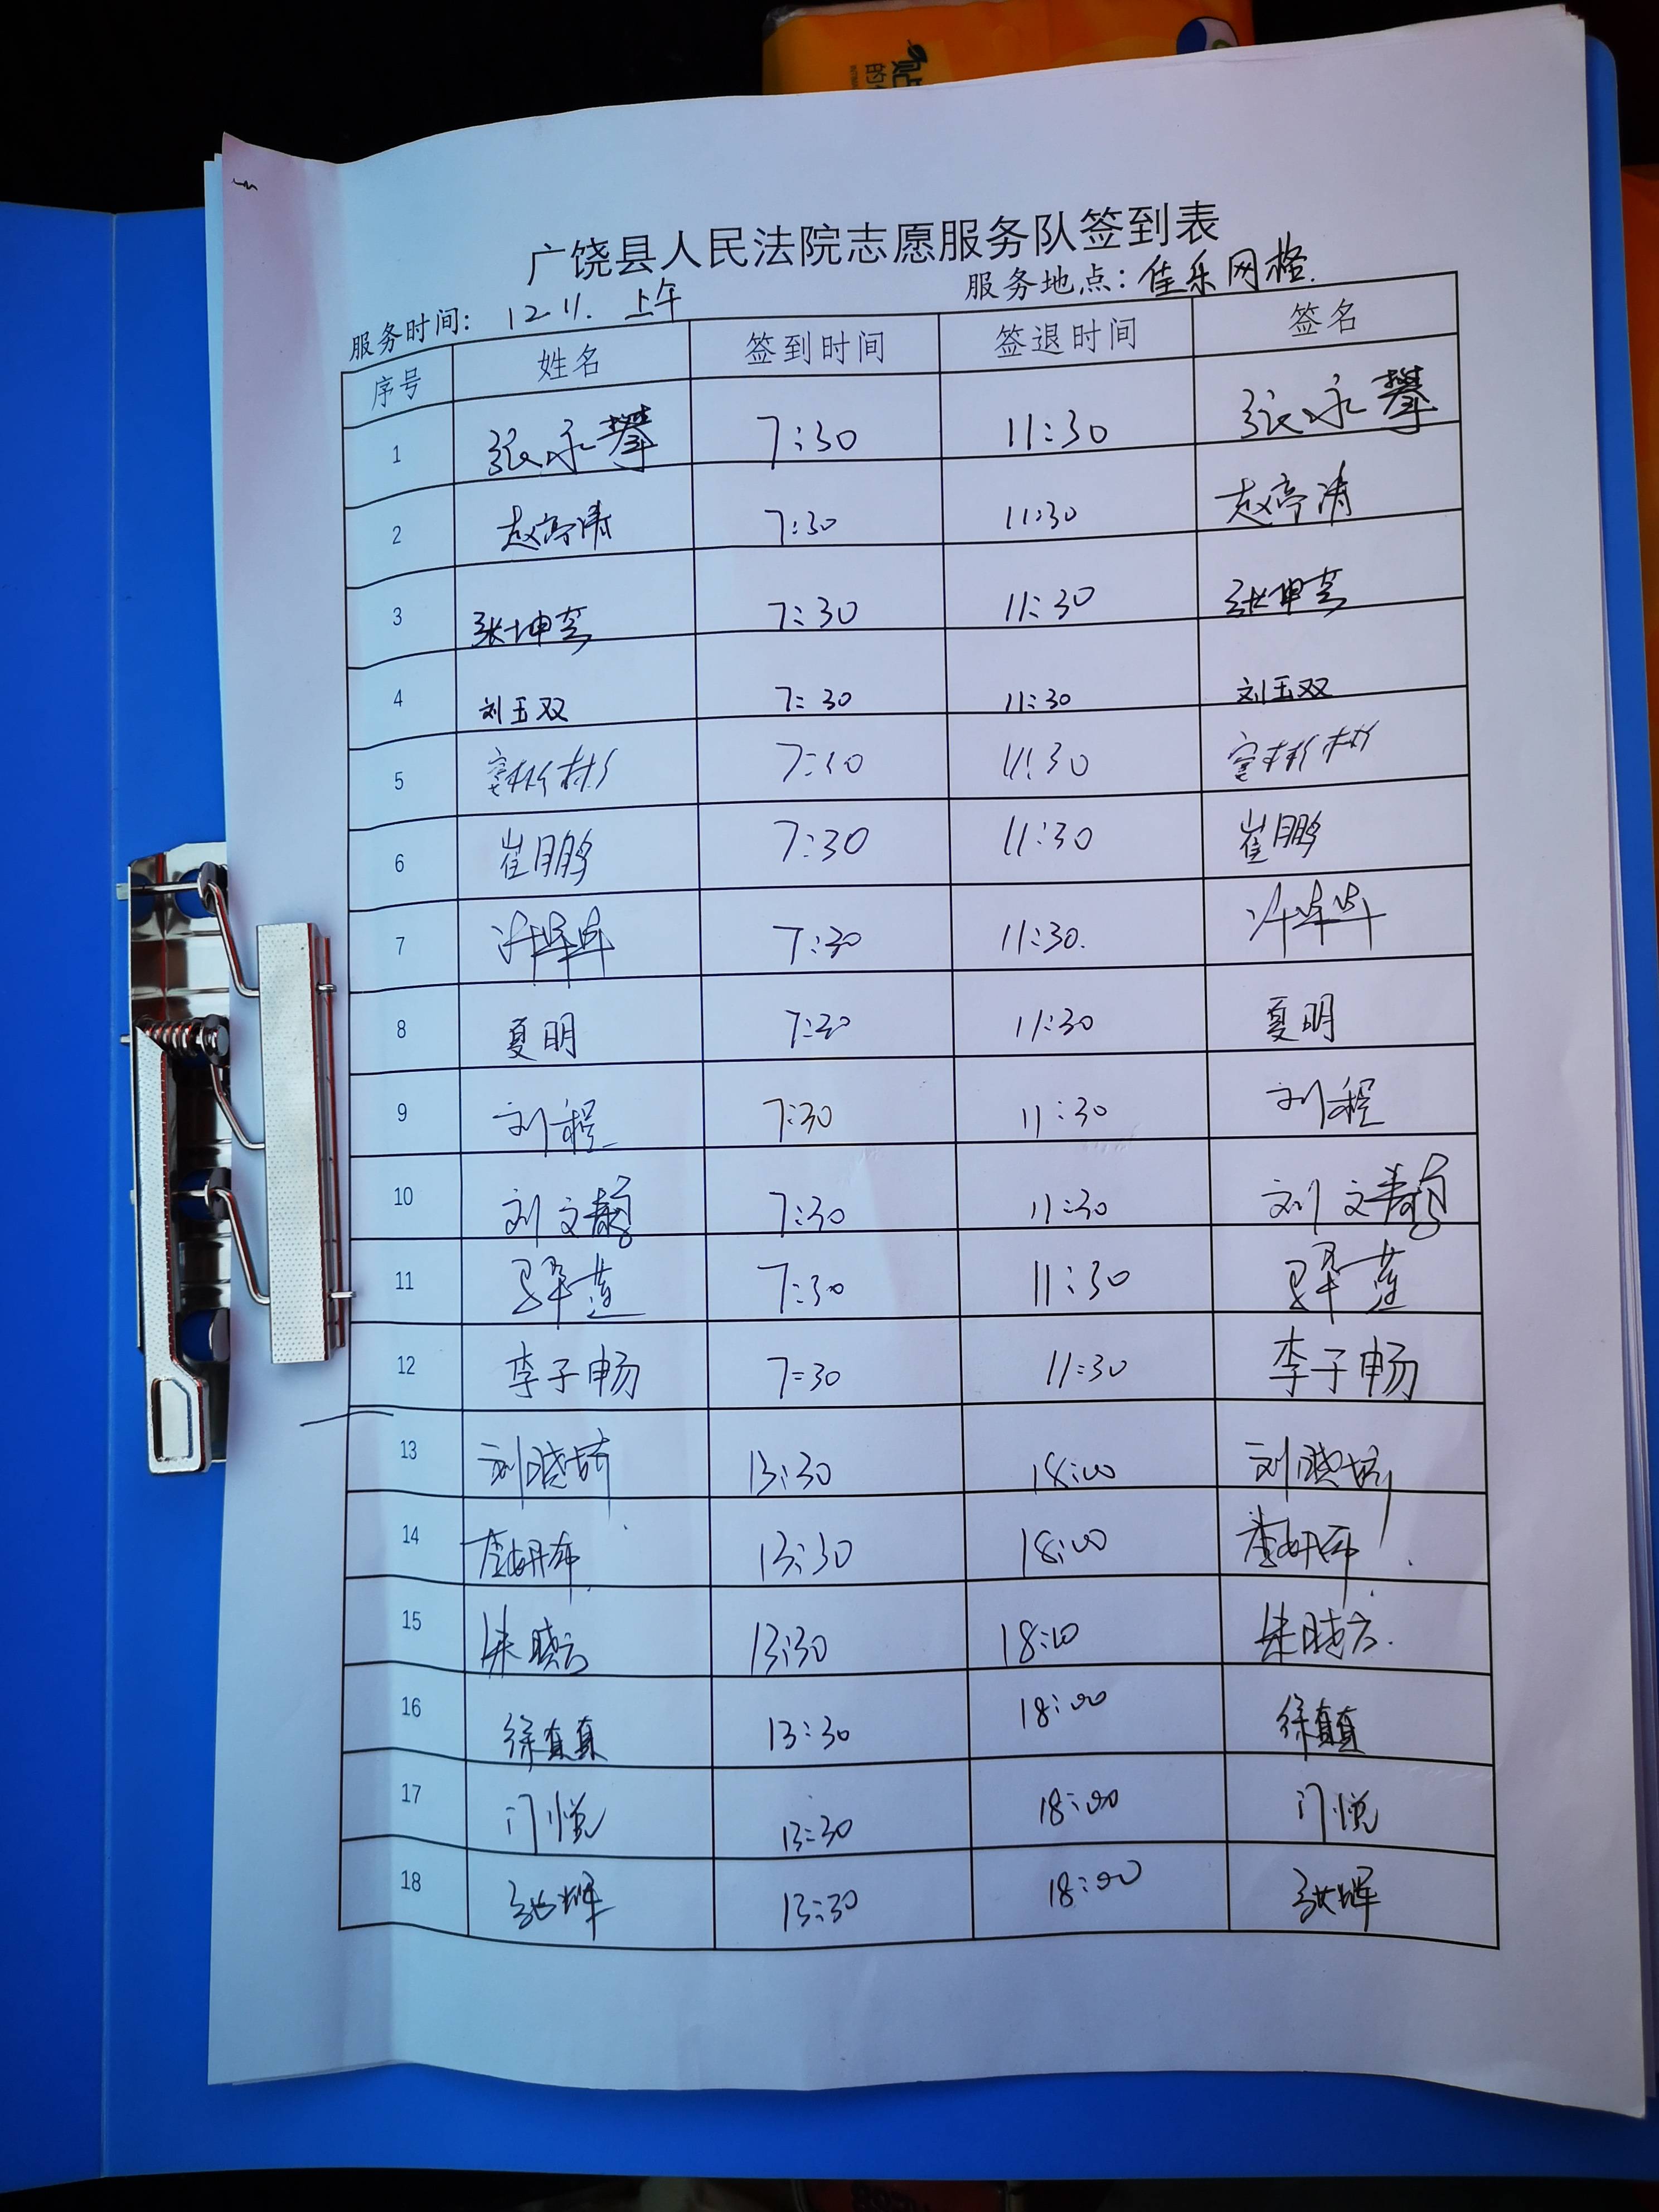 广饶县人民法院志愿服务队签到表
服务时间: 12.11. 上午 服务地点: 佳乐网格.
序号 姓名 签到时间 签退时间 签名
1 张永攀 7:30 11:30 张永攀
2 赵亭清 7:30 11:30 赵亭清
3 张坤 7:30 11:30 张坤
4 刘玉双 7:30 11:30 刘玉双
5 7:30 11:30
6 崔鹏 7:30 11:30 崔鹏
7 7:30 11:30.
8 夏明 7:30 11:30 夏明
9 刘程 7:30 11:30 刘程
10 刘文静 7:30 11:30 刘文静
11 7:30 11:30
12 李子畅 7:30 11:30 李子畅
13 刘晓琦 13:30 18:00 刘晓琦
14 13:30 18:00
15 朱晓云 13:30 18:00 朱晓云.
16 徐真真 13:30 18:00 徐真真
17 门悦 13:30 18:00 门悦
18 张辉 13:30 18:00 张辉